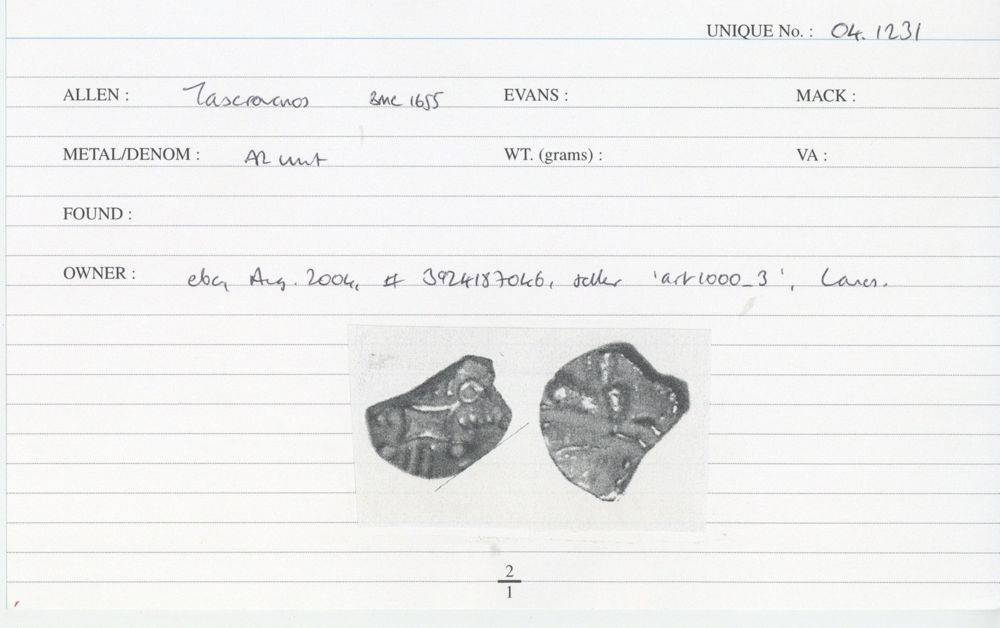 UNIQUE No. : 04.1231
ALLEN : Tasciovanos BMC 1655 EVANS : MACK :
METAL/DENOM : AR unit WT. (grams) : VA :
FOUND :
OWNER : ebay Aug. 2004, # 3924187046, seller 'art1000_3', Lancs.
2
1